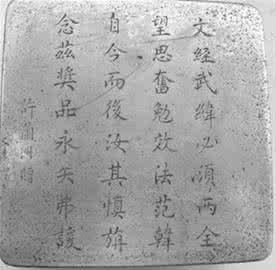 文經武緯必須兩全
望思奮勉效法范韓
自今而後汝其慎旃
念茲奬品永矢弗諼
許蘭洲贈